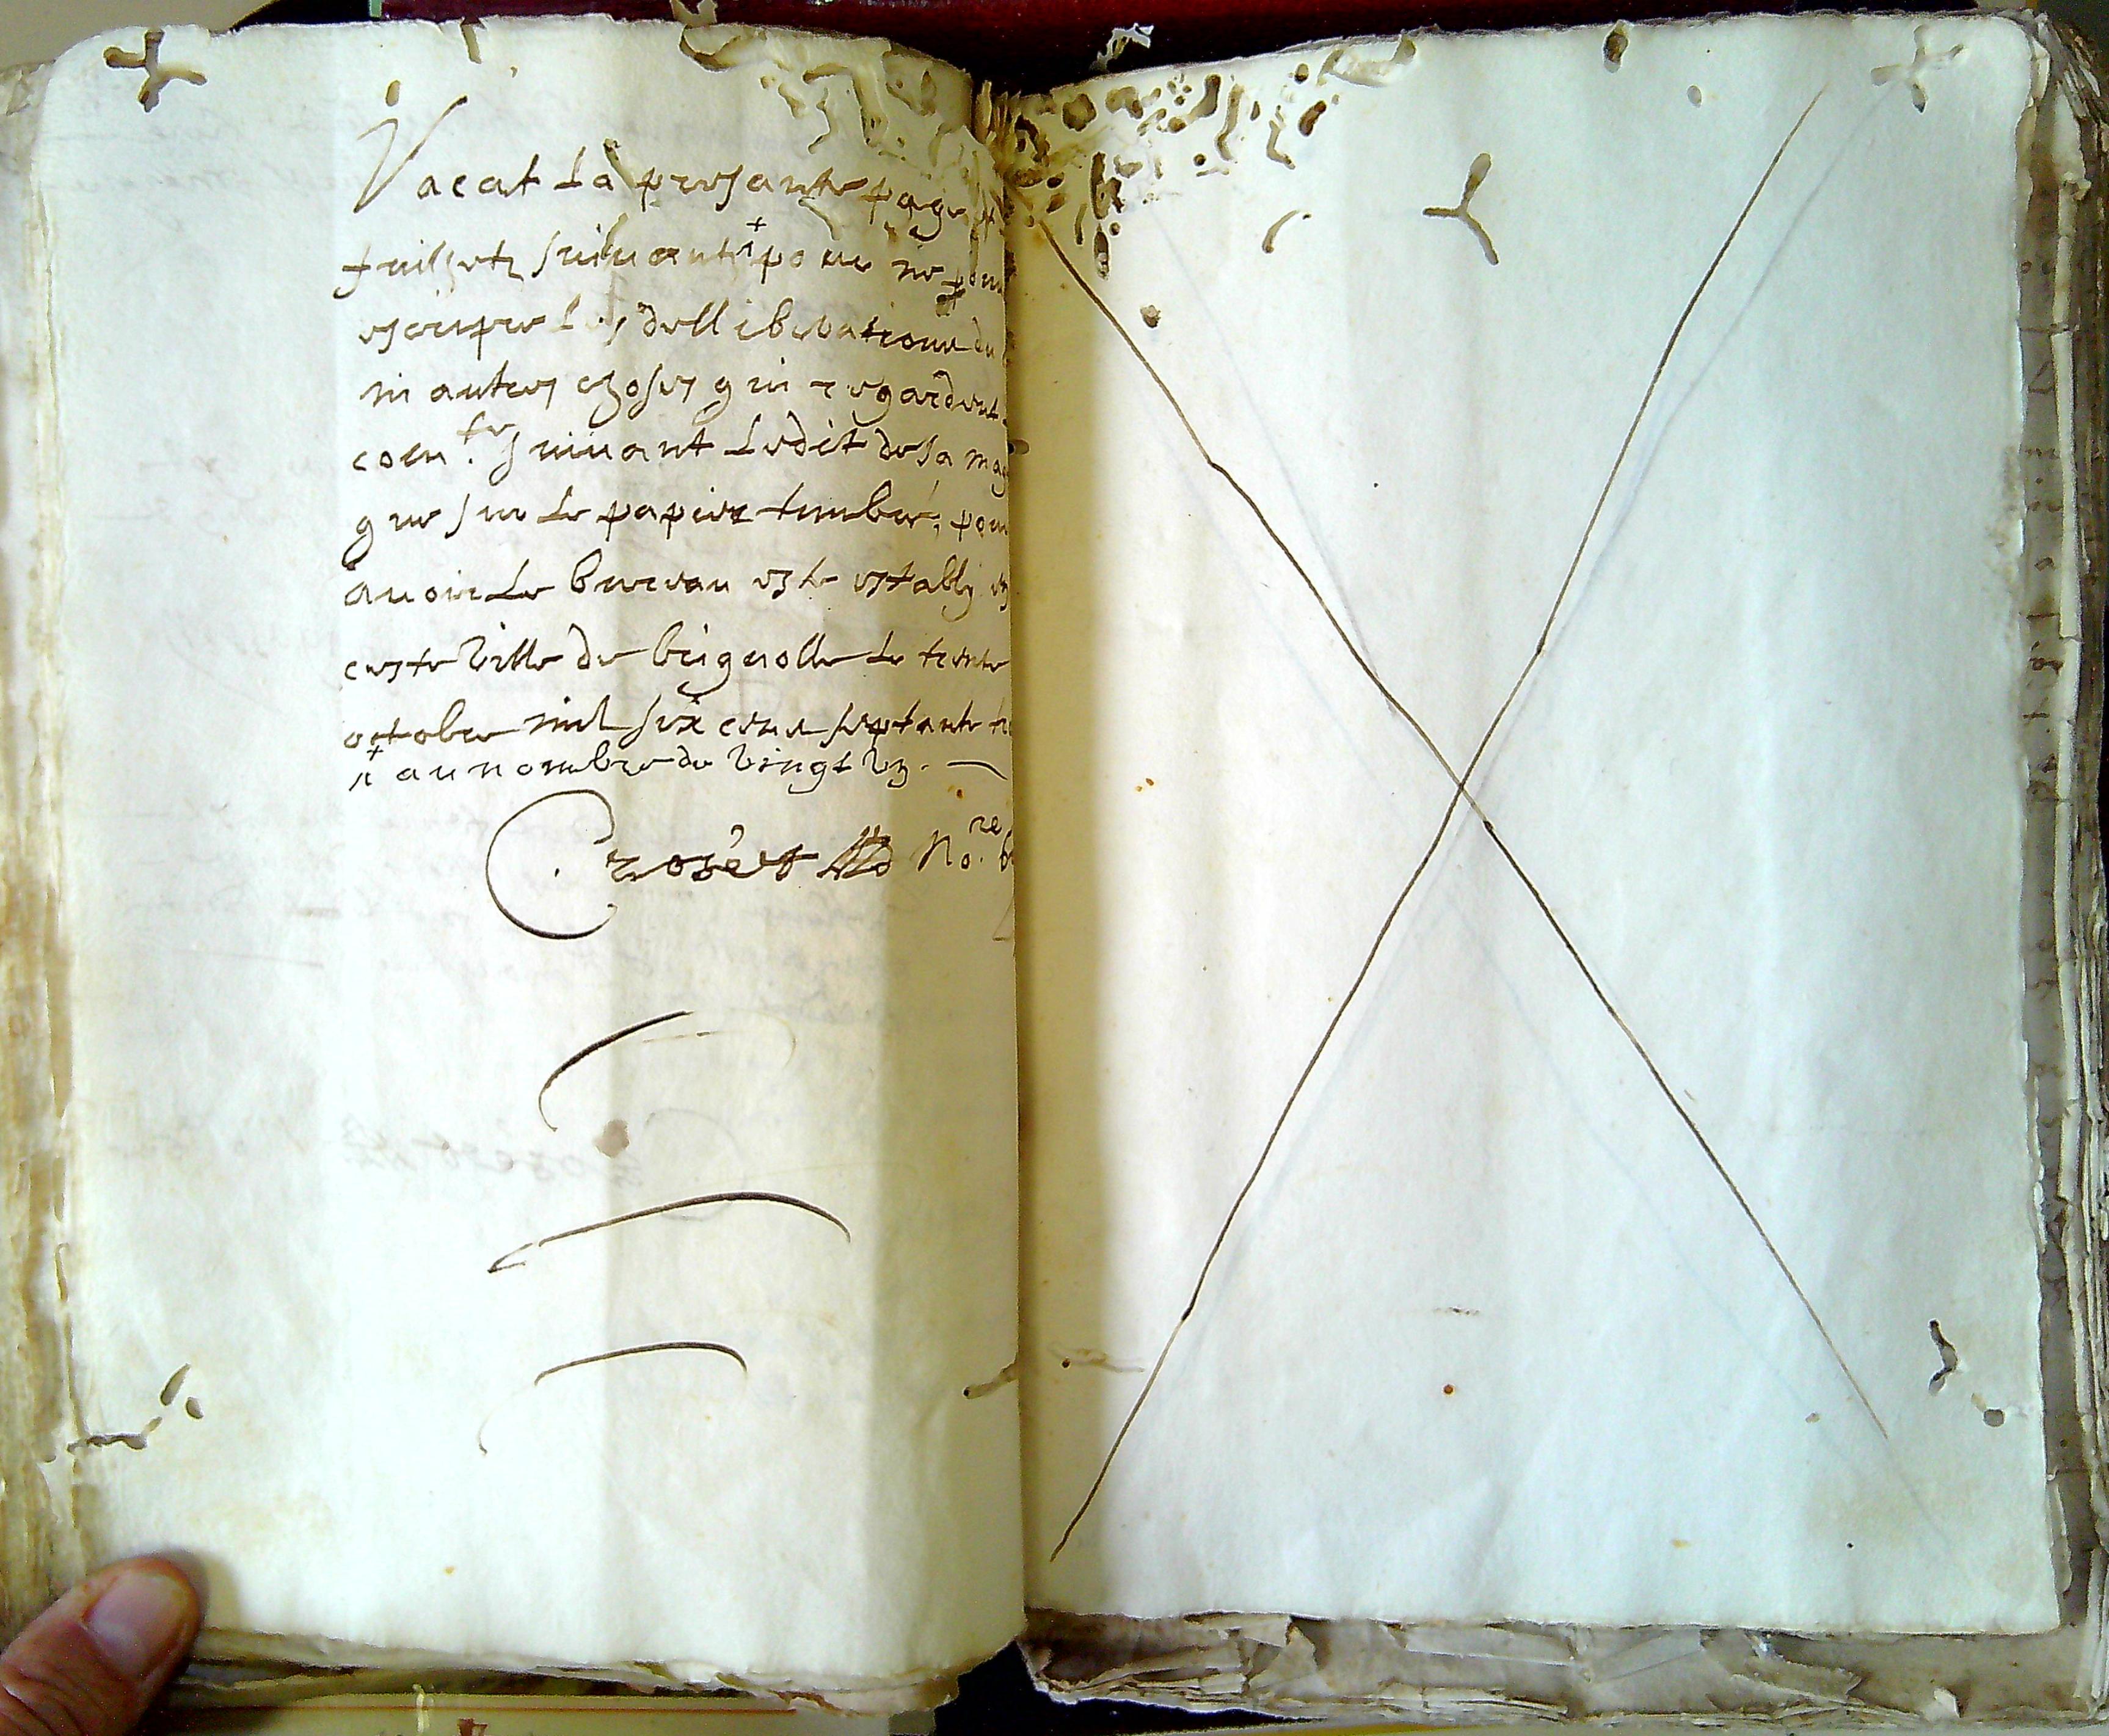 Vacat La presante page et
fuilhets suivants ⁺ pour ne pou
escripre Les delliberations du
ni autres choses qui regardent
com.^te suivant Ledit de sa mag
que sur Le papier timbré, pour
avoir Le bureau este estably en
ceste ville de brignolle Le trente
octobre mil six cens septante tr
⁺ au nombre de vingt un.
Crozet No.^re